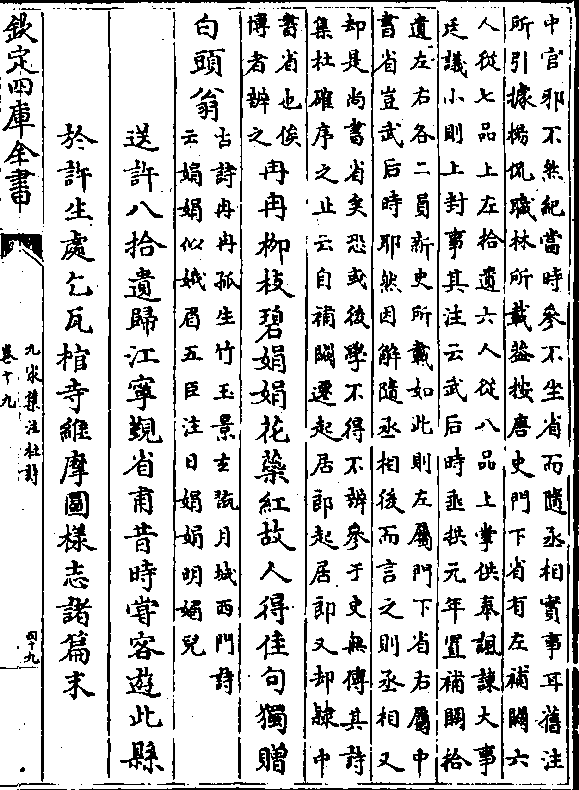 中官邪不然紀當時參不坐省而隨丞相實事耳舊注
所引據楊侃職林所載益按唐史門下省有左補闕六
人從七品上左拾遺六人從八品上掌供奉諷諫大事
廷議小則上封事其注云武后時垂拱元年置補闕拾
遺左右各二員新史所載如此則左屬門下省右屬中
書省豈武后時耶然因解隨丞相後而言之則丞相又
却是尚書省矣恐或後學不得不辨參于史無傳其詩
集杜確序之止云自補闕遷起居郎起居郎又却隸中
書省也俟
博者辨之
冉冉柳枝碧娟娟花蘂紅故人得佳句獨贈
白頭翁
古詩冉冉孤生竹玉景玄翫月城西門詩
云娟娟似娥眉五臣注曰娟娟明媚兒
送許八拾遺歸江寧覲省甫昔時嘗客遊此縣
於許生處乞瓦棺寺維摩圖樣志諸篇末
欽定四庫全書
九家集注杜詩
卷十九
四十九